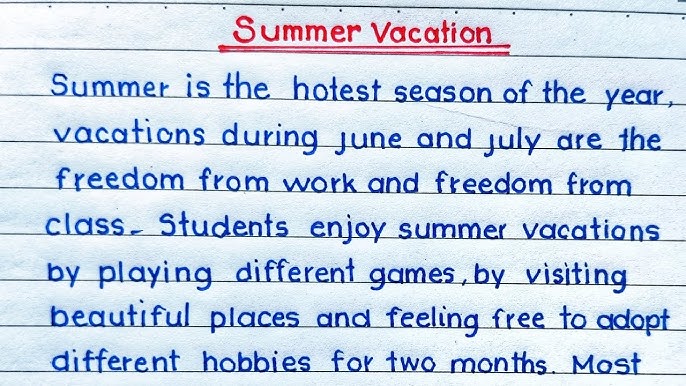 Summer Vacation
Summer is the hottest season of the year,
vacations during june and july are the
freedom from work and freedom from
class. Students enjoy summer vacations
by playing different games, by visiting
beautiful places and feeling free to adopt
different hobbies for two months. Most